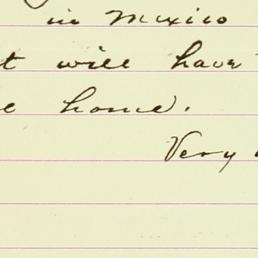 in Mexico
t will have
e home.
Very